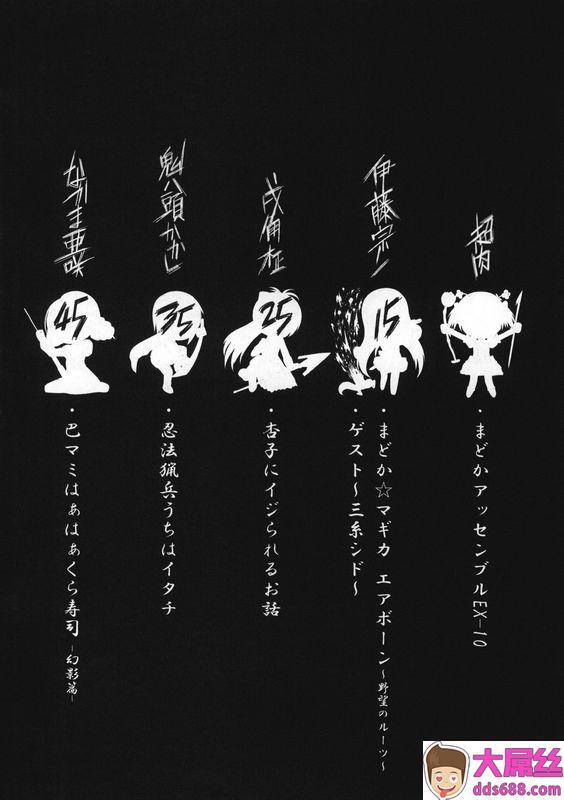 超肉
・まどかアッセンブルEX-10
伊藤宗一
15
・まどか☆マギカ エアボーン～野望のルーツ～
・ゲスト～三糸シド～
25
・杏子にイジられるお話
鬼八頭かかし
35
・忍法猟兵うちはイタチ
なかま亜咲
45
・巴マミはぁはぁくら寿司-幻影篇-
大屌丝
dds688.com